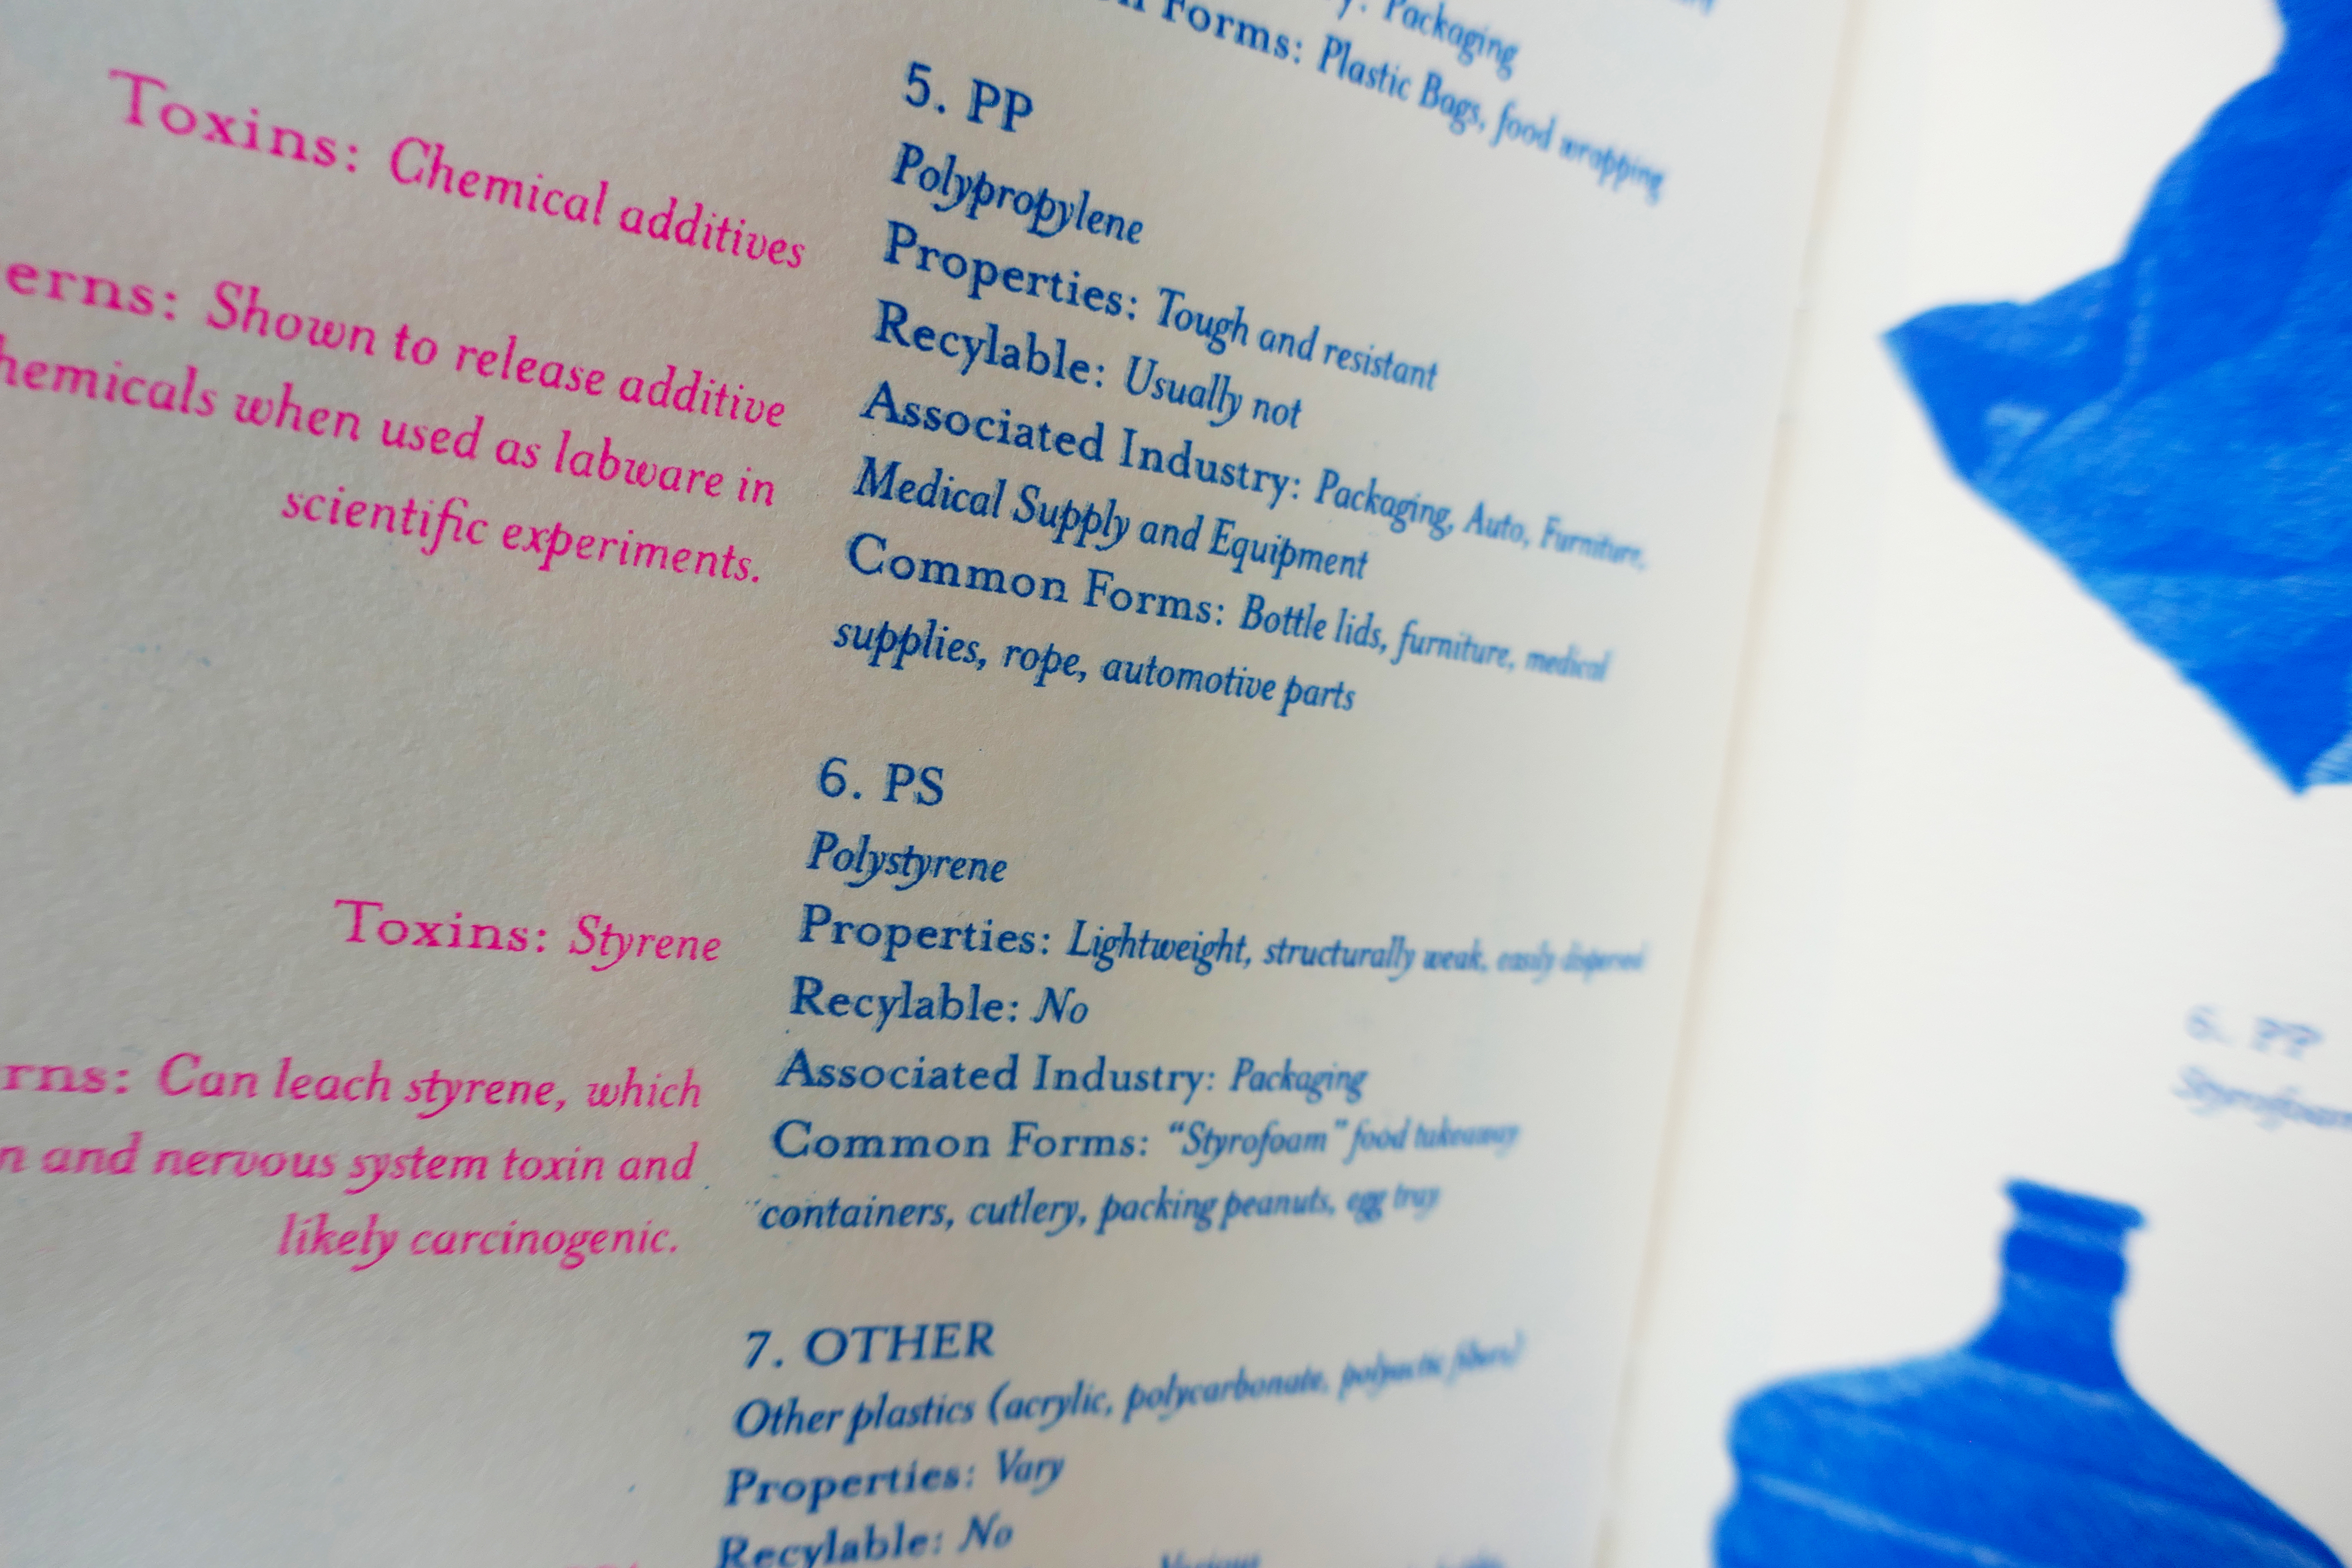 Packaging
Forms: Plastic Bags, food wrapping
Toxins: Chemical additives
erns: Shown to release additive
hemicals when used as labware in
scientific experiments.
5. PP
Polypropylene
Properties: Tough and resistant
Recylable: Usually not
Associated Industry: Packaging, Auto, Furniture,
Medical Supply and Equipment
Common Forms: Bottle lids, furniture, medical
supplies, rope, automotive parts
Toxins: Styrene
rns: Can leach styrene, which
n and nervous system toxin and
likely carcinogenic.
6. PS
Polystyrene
Properties: Lightweight, structurally weak, easily dispersed
Recylable: No
Associated Industry: Packaging
Common Forms: “Styrofoam” food takeaway
containers, cutlery, packing peanuts, egg tray
7. OTHER
Other plastics (acrylic, polycarbonate,
Properties: Vary
Recylable: No
Various
6. PP